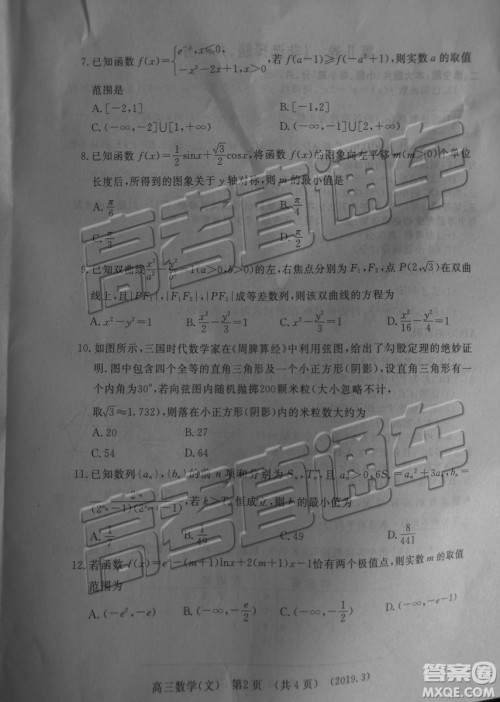 7.已知函数 f(x)={e^{-x},x⩽0, -x²-2x+1,x>0 ,若 f(a-1)⩾f(-a²+1),则实数 a 的取值
范围是
A.[-2,1] B.
C.(-∞,-2]∪[1,+∞) D.
8.已知函数 f(x)=1/2 sinx+√3/2 cosx,将函数 f(x)的图象向左平移 m(m>0)个单位
长度后,所得到的图象关于 y 轴对称,则 m 的最小值是
A.π/6 B.π/4
C.π/3 D.π/2
9.已知双曲线 x²/a²-y²/b²=1(a>0,b>0)的左,右焦点分别为 F₁,F₂,点 P(2,√3)在双曲
线上,且|PF₁|,|F₁F₂|,|PF₂|成等差数列,则该双曲线的方程为
A.x²-y²=1 B.x²/2-y²/3=1 C.x²-y²/3=1 D.x²/16-y²/4=1
10.如图所示,三国时代数学家在《周脾算经》中利用弦图,给出了勾股定理的绝妙证
明.图中包含四个全等的直角三角形及一个小正方形(阴影),设直角三角形有一
个内角为30°,若向弦图内随机抛掷200颗米粒(大小忽略不计,
取√3≈1.732),则落在小正方形(阴影)内的米粒数大约为
A.20 B.27
C.54 D.64
11.已知数列{aₙ},{bₙ}的前 n 项和分别为 Sₙ,Tₙ,且 aₙ>0,6Sₙ=aₙ²+3aₙ,bₙ=
,若 k>Tₙ恒成立,则 k 的最小值为
A. B.1/49 C.49 D.8/441
12.若函数 f(x)=eˣ-(m+1)lnx+2(m+1)x-1恰有两个极值点,则实数 m 的取值
范围为
A.(-e²,-e) B.(-∞,-e/2) C.(-∞,-1/2) D.(-∞,-e-1)
高三数学(文) 第2页 (共4页) (2019.3)
高考直通车
高考直通车
答案圈